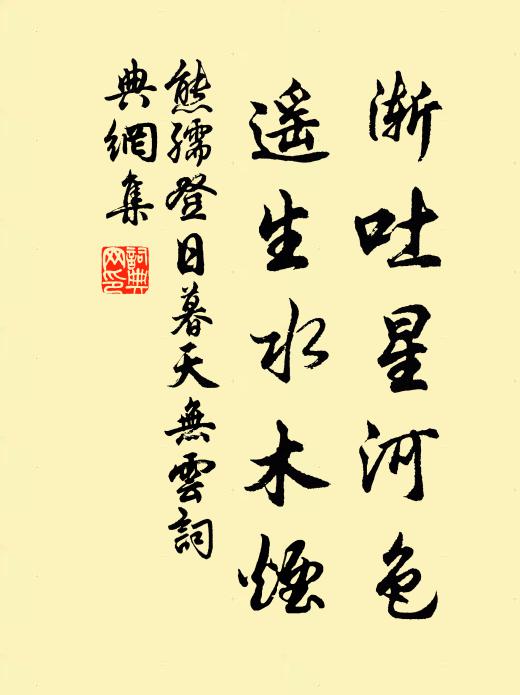 漸吐星河色
遥生水木煙
熊孺登日暮天無雲詞
典網集
詞典
网印